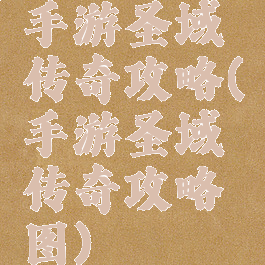 手游圣域
传奇攻略(
手游圣域
传奇攻略
图)